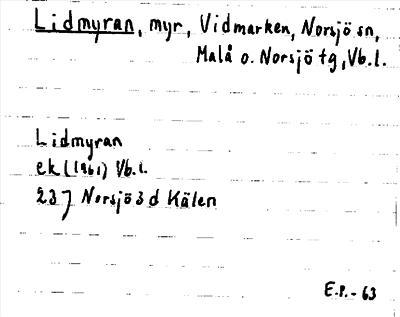 Lidmyran, myr, Vidmarken, Norsjö sn,
Malå o. Norsjö tg, Vb.l.
Lidmyran
ek (1961) Vb.l.
23J Norsjö 3 d Kälen
E.P. - 63